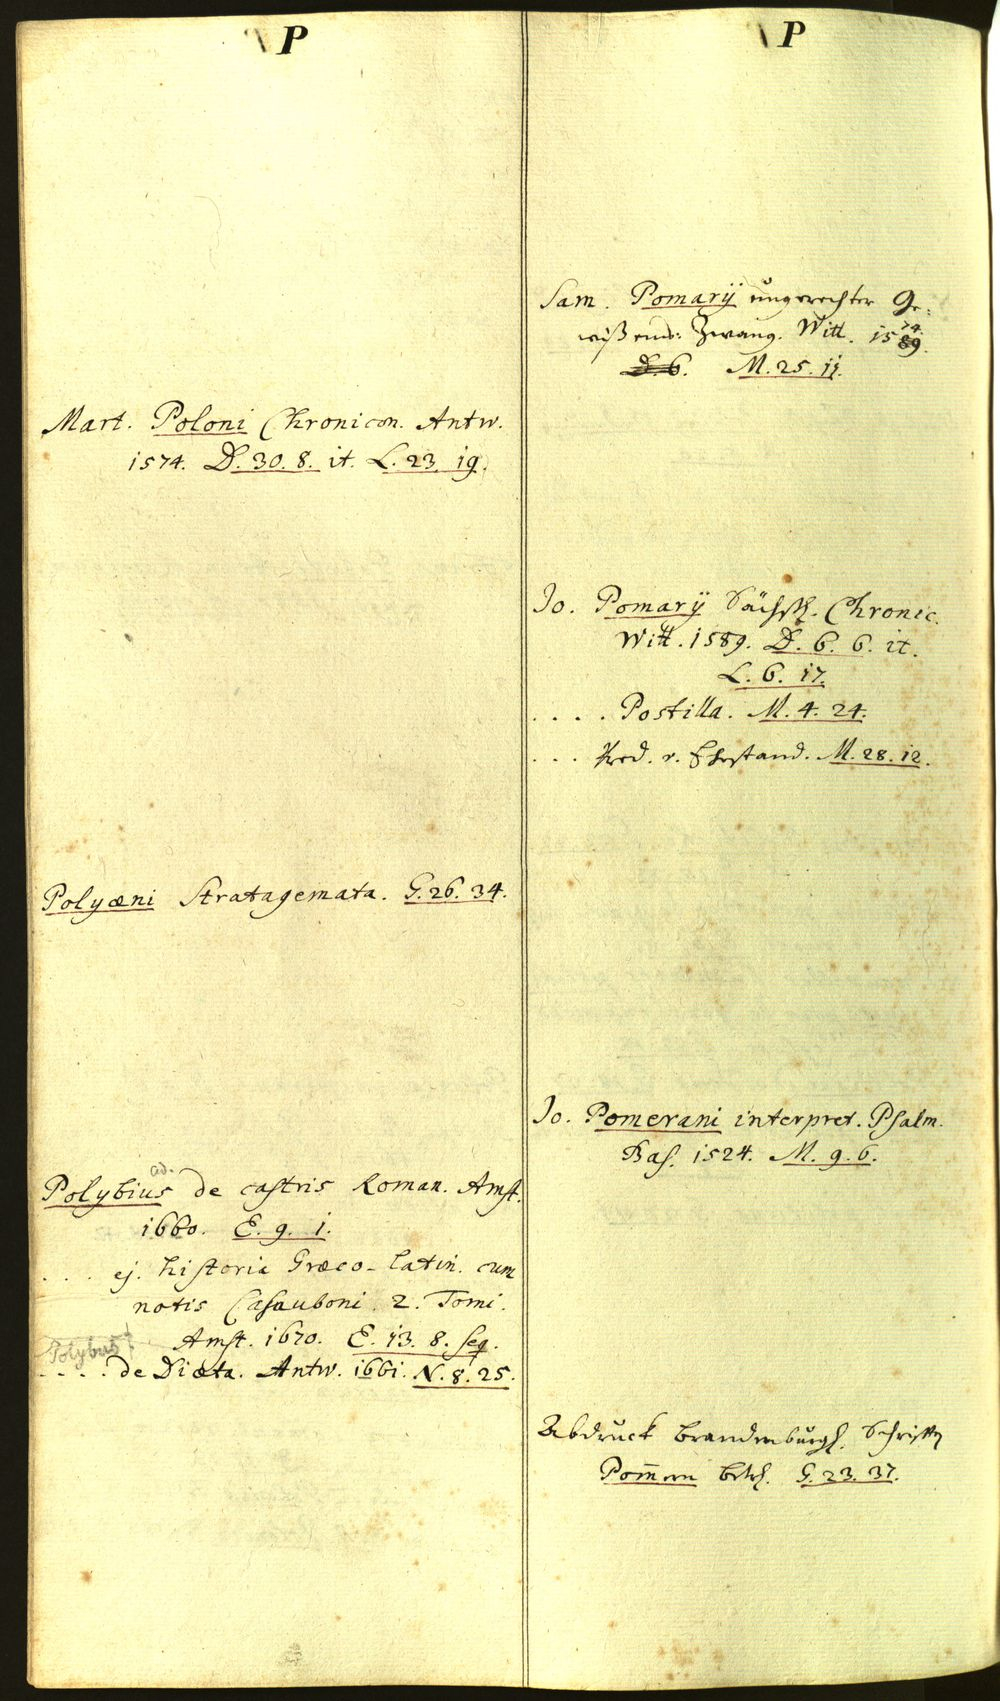 P
Mart. Poloni Chronicon. Antw.
1574. D. 30. 8. it. L. 23. 19.
Polyæni Stratagemata. G. 26. 34.
ad.
Polybius de castris Roman. Amst.
1660. E. 9. 1.
. . . ej. historia Græco-latin. cum
notis Casauboni. 2. Tomi.
Amst. 1670. E. 13. 8. seq.
Polybus
. . . . de Diæta. Antw. 1661. N. 8. 25.
P
Sam. Pomarÿ ungerechter Ge:
wißens: Zwang. Witt. 1589.
74.
D. 6. M. 25. 11.
Jo. Pomarÿ Sächsch. Chronic.
Witt. 1589. D. 6. 6. it.
L. 6. 17.
. . . . Postilla. M. 4. 24.
. . . Pred. v. Ehestand. M. 28. 12.
Jo. Pomerani interpret. Psalm.
Bas. 1524. M. 9. 6.
Abdruck Brandenburgl. Schrifften
Pom̄ern betrf. G. 23. 37.